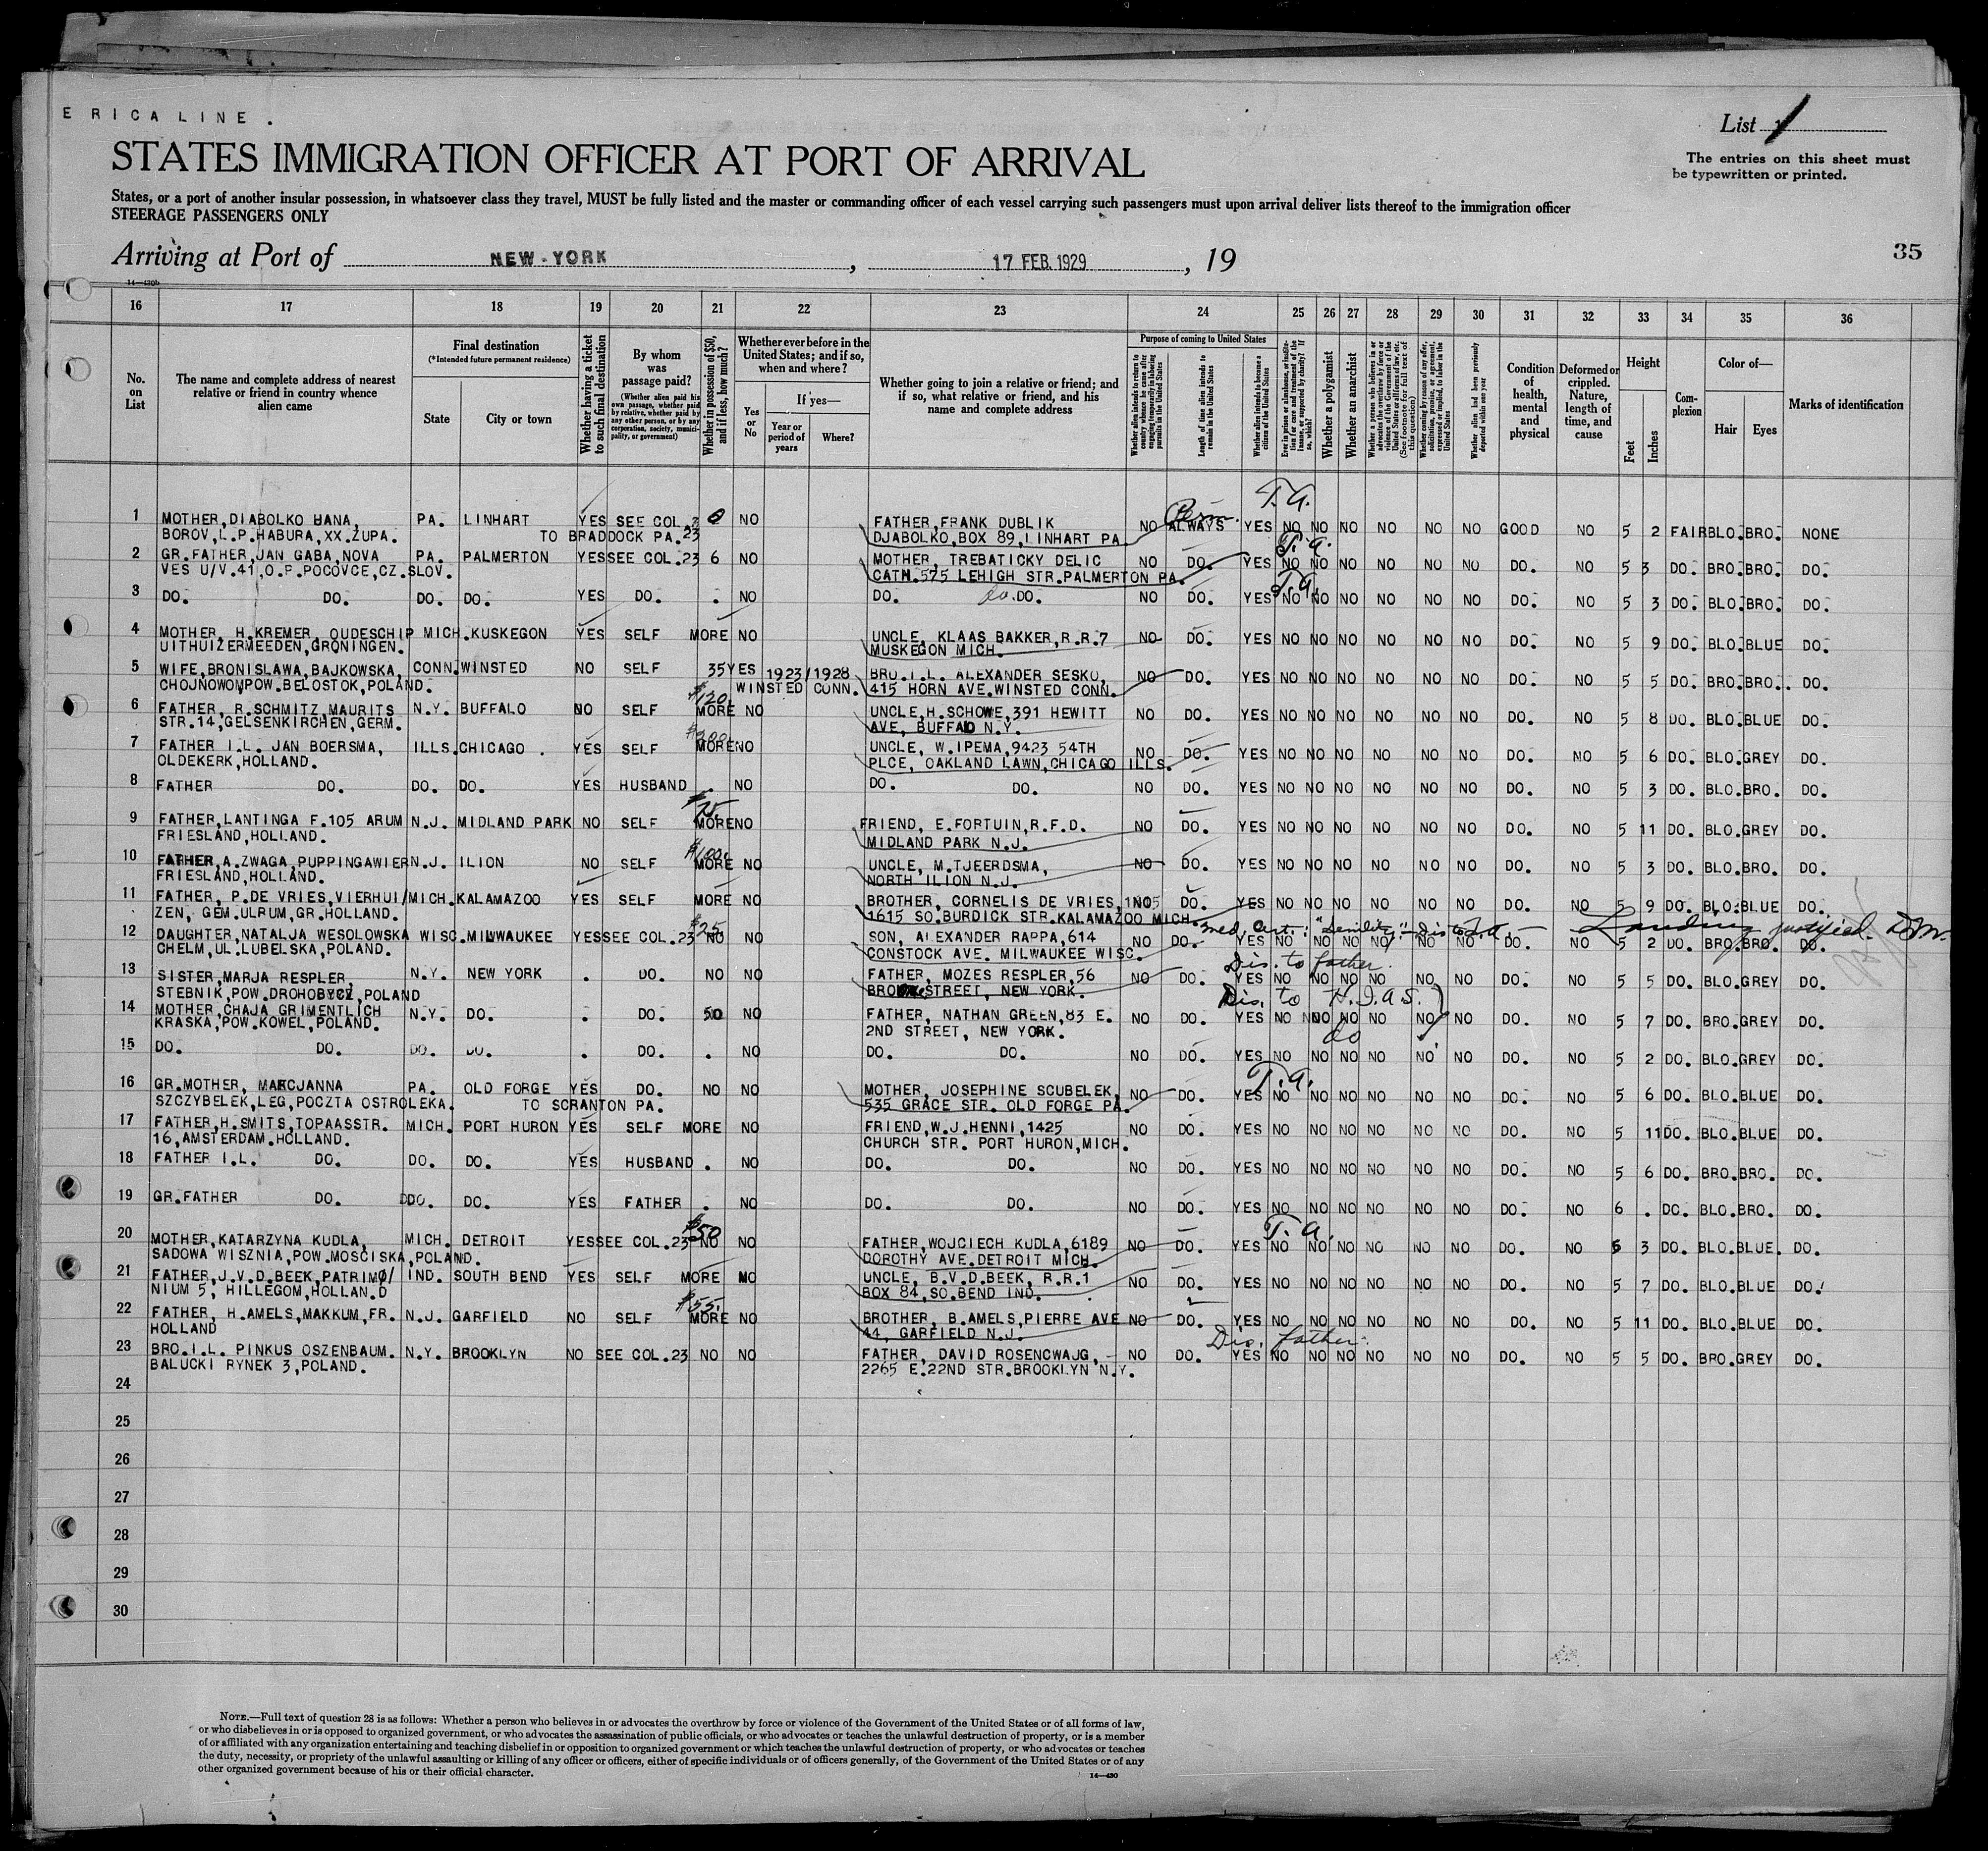 E RICA LINE .
List 1
The entries on this sheet must
be typewritten or printed.
STATES IMMIGRATION OFFICER AT PORT OF ARRIVAL
States, or a port of another insular possession, in whatsoever class they travel, MUST be fully listed and the master or commanding officer of each vessel carrying such passengers must upon arrival deliver lists thereof to the immigration officer
STEERAGE PASSENGERS ONLY
Arriving at Port of NEW-YORK, 17 FEB. 1929, 19
35
14-430b
16 17 18 19 20 21 22 23 24 25 26 27 28 29 30 31 32 33 34 35 36
No. on List
The name and complete address of nearest relative or friend in country whence alien came
Final destination
(*Intended future permanent residence)
State
City or town
Whether having a ticket to such final destination
By whom was passage paid?
(Whether alien paid his own passage, whether paid by relative, whether paid by any other person, or by any corporation, society, municipality, or government)
Whether in possession of $50, and if less, how much?
Whether ever before in the United States; and if so, when and where?
Yes or No
If yes—
Year or period of years
Where?
Whether going to join a relative or friend; and if so, what relative or friend, and his name and complete address
Purpose of coming to United States
Whether alien intends to return to country whence he came after engaging temporarily in laboring pursuits in the United States
Length of time alien intends to remain in the United States
Whether alien intends to become a citizen of the United States
Ever in prison or almshouse, or institution for care and treatment of the insane, or supported by charity? If so, which?
Whether a polygamist
Whether an anarchist
Whether a person who believes in or advocates the overthrow by force or violence of the Government of the United States or all forms of law, etc. (See footnote for full text of this question)
Whether coming by reason of any offer, solicitation, promise, or agreement, expressed or implied, to labor in the United States
Whether alien had been previously deported within one year
Condition of health, mental and physical
Deformed or crippled. Nature, length of time, and cause
Height
Feet
Inches
Complexion
Color of—
Hair
Eyes
Marks of identification
T.A.
Perm.
1 MOTHER, DIABOLKO HANA, PA. LINHART YES SEE COL. 0 NO FATHER, FRANK DUBLIK NO ALWAYS YES NO NO NO NO NO NO GOOD NO 5 2 FAIR BLO. BRO. NONE
BOROV, L.P. HABURA, XX. ZUPA. TO BRADDOCK PA. 23 DJABOLKO, BOX 89, LINHART PA
T.A.
2 GR. FATHER, JAN GABA, NOVA PA. PALMERTON YES SEE COL. 23 6 NO MOTHER, TREBATICKY DELIC NO DO. YES NO NO NO NO NO NO DO. NO 5 3 DO. BRO. BRO. DO.
VES U/V. 41, O.P. POCOVCE, CZ. SLOV. CATH. 575 LEHIGH STR. PALMERTON PA.
T.A.
3 DO. DO. DO. DO. YES DO. . NO DO. do. DO. NO DO. YES NO NO NO NO NO NO DO. NO 5 3 DO. BLO. BRO. DO.
4 MOTHER, H. KREMER, OUDESCHIP MICH. KUSKEGON YES SELF MORE NO UNCLE, KLAAS BAKKER, R.R. 7 NO DO. YES NO NO NO NO NO NO DO. NO 5 9 DO. BLO. BLUE DO.
UITHUIZERMEEDEN, GRONINGEN. MUSKEGON MICH.
5 WIFE, BRONISLAWA, BAJKOWSKA, CONN. WINSTED NO SELF 35 YES 1923/1928 BRO. I.L. ALEXANDER SESKO, NO DO. YES NO NO NO NO NO NO DO. NO 5 5 DO. BRO. BRO. DO.
CHOJNOWOMPOW. BELOSTOK, POLAND. WINSTED CONN. 415 HORN AVE. WINSTED CONN.
$120
6 FATHER, R. SCHMITZ, MAURITS N.Y. BUFFALO NO SELF MORE NO UNCLE, H. SCHOWE, 391 HEWITT NO DO. YES NO NO NO NO NO NO DO. NO 5 8 DO. BLO. BLUE DO.
STR. 14, GELSENKIRCHEN, GERM. AVE, BUFFALO N.Y.
7 FATHER I.L. JAN BOERSMA, ILLS. CHICAGO . YES SELF MORE NO UNCLE, W. IPEMA, 9423 54TH NO DO. YES NO NO NO NO NO NO DO. NO 5 6 DO. BLO. GREY DO.
OLDEKERK, HOLLAND. PLCE, OAKLAND LAWN, CHICAGO ILLS.
8 FATHER DO. DO. DO. YES HUSBAND . NO DO. DO. NO DO. YES NO NO NO NO NO NO DO. NO 5 3 DO. BLO. BRO. DO.
9 FATHER, LANTINGA F. 105 ARUM N.J. MIDLAND PARK NO SELF MORE NO FRIEND, E. FORTUIN, R.F.D. NO DO. YES NO NO NO NO NO NO DO. NO 5 11 DO. BLO. GREY DO.
FRIESLAND, HOLLAND. MIDLAND PARK N.J.
$100.
10 FATHER, A. ZWAGA, PUPPINGAWIER N.J. ILION NO SELF MORE NO UNCLE, M. TJEERDSMA, NO DO. YES NO NO NO NO NO NO DO. NO 5 3 DO. BLO. BRO. DO.
FRIESLAND, HOLLAND. NORTH ILION N.J.
11 FATHER, P. DE VRIES, VIERHUI/ MICH. KALAMAZOO YES SELF MORE NO BROTHER, CORNELIS DE VRIES, NO DO. YES NO NO NO NO NO NO DO. NO 5 9 DO. BLO. BLUE DO.
ZEN, GEM. ULRUM, GR. HOLLAND. 1615 SO. BURDICK STR. KALAMAZOO MICH.
$25 med. Cert.: "Senility" - Dis to T.A. - Landing justified.
12 DAUGHTER, NATALJA WESOLOWSKA WISC. MILWAUKEE YES SEE COL. 23 NO NO SON, ALEXANDER RAPPA, 614 NO DO. YES NO NO NO NO NO NO DO. NO 5 2 DO. BRO. BRO. DO.
CHELM, UL. LUBELSKA, POLAND. CONSTOCK AVE. MILWAUKEE WISC.
Dis. to father.
13 SISTER, MARJA RESPLER, N.Y. NEW YORK . DO. NO NO FATHER, MOZES RESPLER, 56 NO DO. YES NO NO NO NO NO NO DO. NO 5 5 DO. BLO. GREY DO.
STEBNIK, POW. DROHOBYCZ, POLAND STREET, NEW YORK.
Dis. to H.I.A.S.
14 MOTHER, CHAJA GRIMENTLICH N.Y. DO. . DO. 50 NO FATHER, NATHAN GREEN, 83 E. NO DO. YES NO NO NO NO NO NO DO. NO 5 7 DO. BRO. GREY DO.
KRASKA, POW. KOWEL, POLAND. 2ND STREET, NEW YORK.
do
15 DO. DO. DO. DO. . DO. . NO DO. DO. NO DO. YES NO NO NO NO NO NO DO. NO 5 2 DO. BLO. GREY DO.
T.A.
16 GR. MOTHER, MARCJANNA PA. OLD FORGE YES DO. NO NO MOTHER, JOSEPHINE SCUBELEK, NO DO. YES NO NO NO NO NO NO DO. NO 5 6 DO. BLO. BLUE DO.
SZCZYBELEK, LEG, POCZTA OSTROLEKA. TO SCRANTON PA. 535 GRACE STR. OLD FORGE PA.
17 FATHER, H. SMITS, TOPAASSTR. MICH. PORT HURON YES SELF MORE NO FRIEND, W.J. HENNI, 1425 NO DO. YES NO NO NO NO NO NO DO. NO 5 11 DO. BLO. BLUE DO.
16, AMSTERDAM. HOLLAND. CHURCH STR. PORT HURON, MICH.
18 FATHER I.L. DO. DO. DO. YES HUSBAND . NO DO. DO. NO DO. YES NO NO NO NO NO NO DO. NO 5 6 DO. BRO. BRO. DO.
19 GR. FATHER DO. DO. DO. YES FATHER . NO DO. DO. NO DO. YES NO NO NO NO NO NO DO. NO 6 . DO. BLO. BRO. DO.
$50 T.A.
20 MOTHER, KATARZYNA KUDLA, MICH. DETROIT YES SEE COL. 23 NO NO FATHER, WOJCIECH KUDLA, 6189 NO DO. YES NO NO NO NO NO NO DO. NO 5 3 DO. BLO. BLUE. DO.
SADOWA WISZNIA, POW. MOSCISKA, POLAND. DOROTHY AVE. DETROIT MICH.
21 FATHER, J.V.D. BEEK, PATRIMO/ IND. SOUTH BEND YES SELF MORE NO UNCLE, B.V.D. BEEK, R.R. 1 NO DO. YES NO NO NO NO NO NO DO. NO 5 7 DO. BLO. BLUE DO.
NIUM 5, HILLEGOM, HOLLAN.D BOX 84, SO. BEND IND.
$55.
22 FATHER, H. AMELS, MAKKUM, FR. N.J. GARFIELD NO SELF MORE NO BROTHER, B. AMELS, PIERRE AVE NO DO. YES NO NO NO NO NO NO DO. NO 5 11 DO. BLO. BLUE DO.
HOLLAND 44, GARFIELD N.J.
Dis. father.
23 BRO. I.L. PINKUS OSZENBAUM. N.Y. BROOKLYN NO SEE COL. 23 NO NO FATHER, DAVID ROSENCWAJG, NO DO. YES NO NO NO NO NO NO DO. NO 5 5 DO. BRO. GREY DO.
BALUCKI RYNEK 3, POLAND. 2265 E. 22ND STR. BROOKLYN N.Y.
24
25
26
27
28
29
30
NOTE.—Full text of question 28 is as follows: Whether a person who believes in or advocates the overthrow by force or violence of the Government of the United States or of all forms of law,
or who disbelieves in or is opposed to organized government, or who advocates the assassination of public officials, or who advocates or teaches the unlawful destruction of property, or is a member
of or affiliated with any organization entertaining and teaching disbelief in or opposition to organized government or which teaches the unlawful destruction of property, or who advocates or teaches
the duty, necessity, or propriety of the unlawful assaulting or killing of any officer or officers, either of specific individuals or of officers generally, of the Government of the United States or of any
other organized government because of his or their official character.
14—430